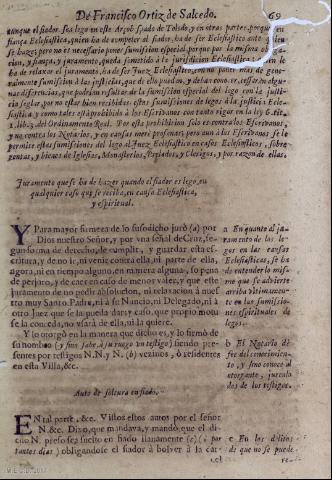 De Francisco Ortiz de Salcedo. 69
aunque el fiador sea lego en este Arçobispado de Toledo, y en otras partes, porque
fiança, quien ha de compeler al fiador, ha de ser Eclesiastico ante quien
se haze; pero no es necessario poner sumission especial, porque por la misma obliga-
cion, y fiança, y juramento, queda sometido a la jurisdicion Eclesiastica: y en lo
ha de relaxar el juramento, ha de ser Juez Eclesiastico, mas no
sumission a las justicias, que de ello puedan, y deban conocer,
diferencias, que podrian resultar de la sumission especial del lego con la justi-
cia seglar, por no estar bien recibidas estas sumissiones de legos à la justicia Ecle-
siastica, y como tales està prohibido à los Escrivanos con tanto rigor en la ley 6. tit.
1. libr. 2. del Ordenamiento Real. Pero esta prohibicion solo es contra los Escrivanos,
y no contra los Notarios, y en causas mere profanas; pero aun à los Escrivanos se le
permite estas sumissiones del lego al Juez Eclesiastico en casos Eclesiasticos, sobre
rentas, y bienes de Iglesias, Monasterios, Prelados, y Clerigos, y por razon de ellas.
Juramento que se ha de hazer quando el fiador es lego, en
qualquier caso que se reciba, en causa Eclesiastica,
y espiritual.
Y Para mayor firmeza de lo susodicho juró (a) por
Dios nuestro Señor, y por vna señal de Cruz, se-
gun forma de derecho, de cumplir, y guardar esta es-
critura, y de no ir, ni venir contra ella, ni parte de ella,
agora, ni en tiempo alguno, en manera alguna, so pena
de perjuro, y de caer en caso de menos valer, y que este
juramento no pedirà absolucion, ni relaxacion à nues-
tro muy Santo Padre, ni à su Nuncio, ni Delegado, ni à
otro Juez que se la pueda dar; y caso, que propio motu
se la conceda, no vsarà de ella, ni la quiere.
Y lo otorgó en la manera que dicho es, y lo firmò de
su nombre (y sino sabe, à su ruego vn testigo) siendo pre-
sentes por testigos N.N. y N. (b) vezinos, ò residentes
en esta Villa, &c.
a En quanto al ju-
ramento de los le-
gos en las causas
Eclesiasticas, se ha
de entender lo mis-
mo que se advierte
arriba vltimamen-
te en las sumissio-
nes espirituales de
legos.
b El Notario dè
fee del conocimien-
to, y sino conoce al
otorgante, jurarà-
dos de los testigos.
Auto de soltura en fiado.
EN tal parte, &c. Vistos estos autos por el señor
N. &c. Dixo, que mandava, y mandò, que el di-
cho N. preso sea suelto en fiado llanamente (c) (ò por
tantos dias) obligandose el fiador à bolver à la car-
cel
c En los delitos
de que no se puede